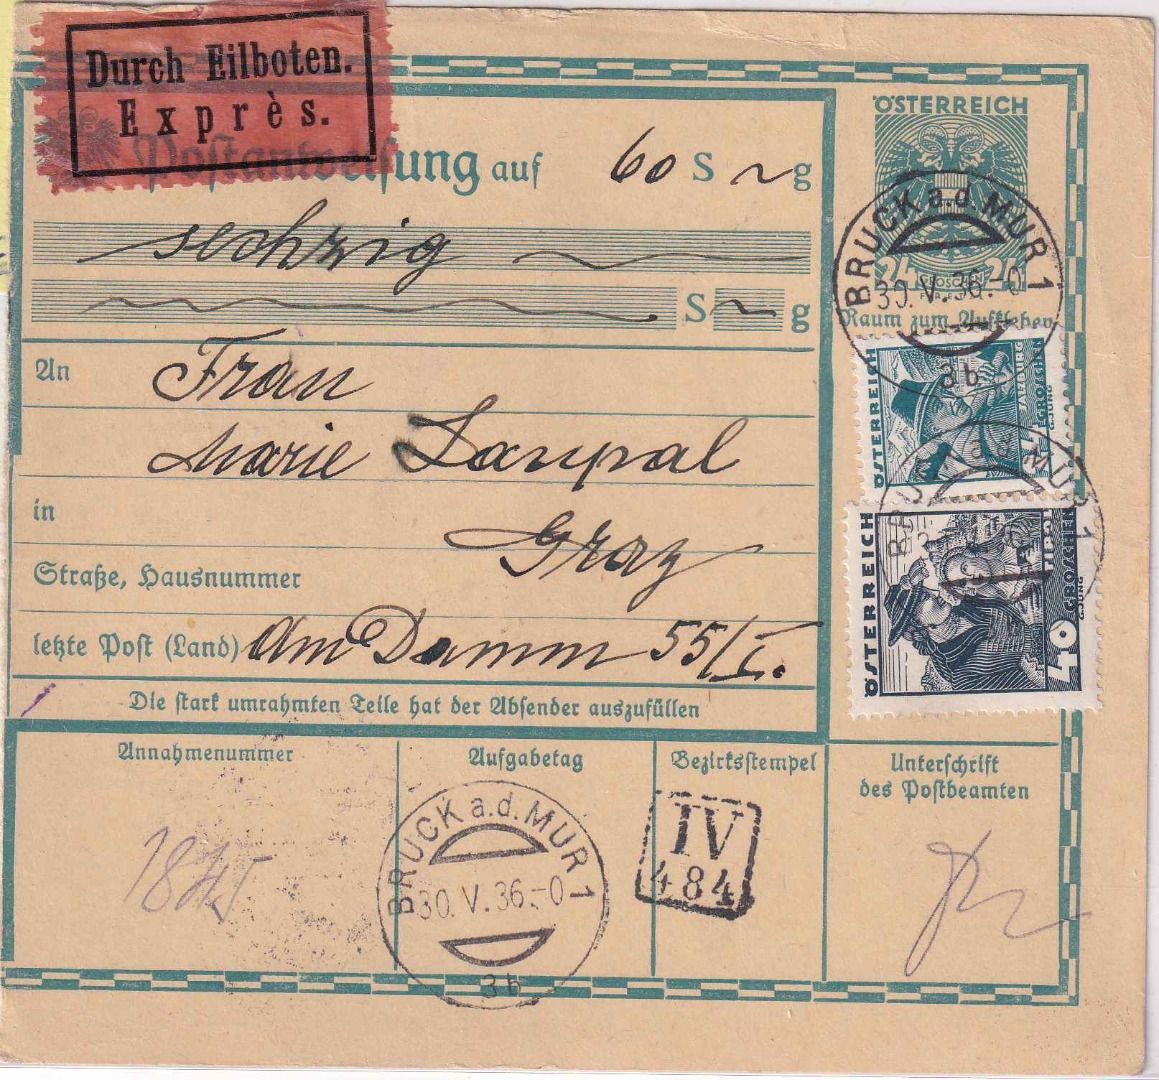 Durch Eilboten.
Exprès.
Postanweisung auf 60 S ~ g
sechzig
S ~ g
An Frau
Marie Lanpal
in Graz
Straße, Hausnummer
letzte Post (Land) Am Damm 55/I.
Die stark umrahmten Teile hat der Absender auszufüllen
ÖSTERREICH
24 GROSCHEN 24
BRUCK a.d. MUR 1
30.V.36.-0
3b
Raum zum Aufkleben
ÖSTERREICH
SALZBURG
GROSCHEN
G.JUNG
BRUCK a.d. MUR 1
ÖSTERREICH
TIROL
40 GROSCHEN
G.JUNG
Annahmenummer
Aufgabetag
BRUCK a.d. MUR 1
30.V.36.-0
3b
Bezirksstempel
IV
484
Unterschrift
des Postbeamten